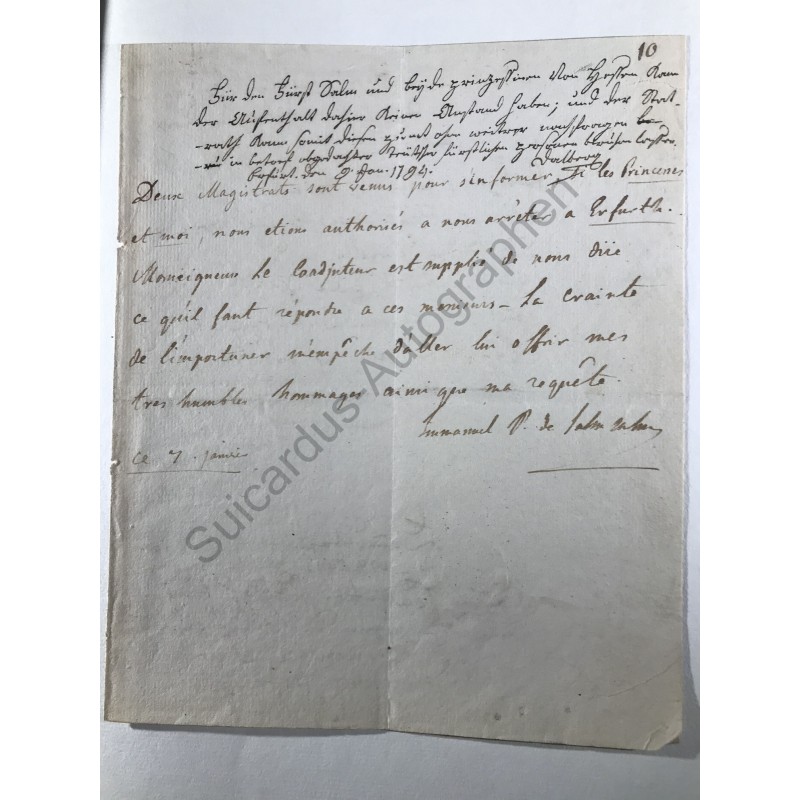 10
Für den Fürst Salm und beyde prinzessinen von Hessen Kann
der Aufenthalt dahier Keinen Anstand haben; und der Stat-
-rath Kann somit diesen punct ohne weitere nachfragen be-
in betref abgedachter fürstlichen personen beruhen lassen.
Erfurt. den 9. Jan. 1794. Dalberg
Deux Magistrats sont venus pour s'informer Si les Princesses
et moi, nous etions authorisés a nous arrêter a Erfurth.
Monseigneur Le Coadjuteur est supplié de nous dire
ce qu'il faut répondre a ces messieurs – La crainte
de l'importuner m'empêche d'aller lui offrir mes
tres humbles hommages ainsi que ma requête.
Emmanuel P. de Salm Salm
ce 7. janvier
Suicardus-Autographen